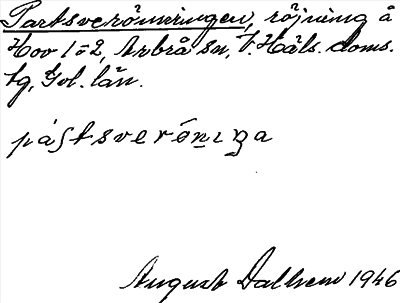 Partsverönningen, röjning å
Hov 1-2, Arbrå sn, V. Häls. doms.
tg, Gvl. län.
páʃtsverȫnıŋa
August Dalhem 1946